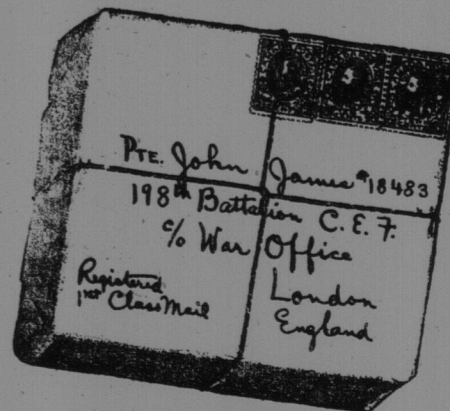 Pte. John James #18483
198th Battalion C.E.F.
c/o War Office
London
England
Registered
1st Class Mail